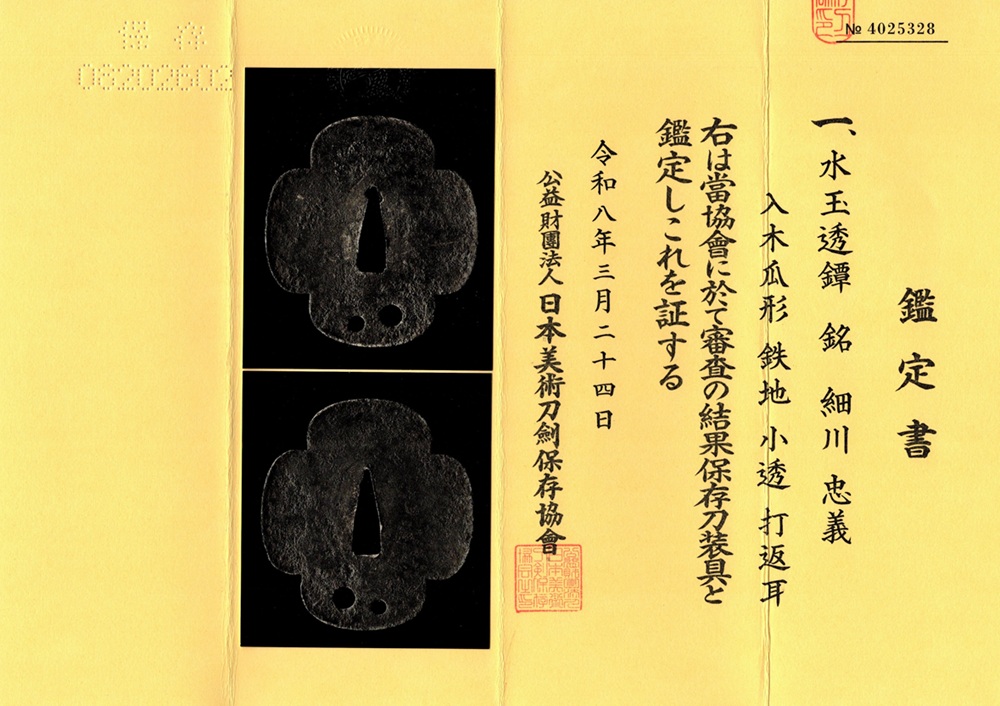 № 4025328
鑑定書
一、水玉透鐔 銘 細川 忠義
入木瓜形 鉄地 小透 打返耳
右は當協會に於て審査の結果保存刀装具と
鑑定しこれを証する
令和八年三月二十四日
公益財團法人 日本美術刀劍保存協會
保存
08202603